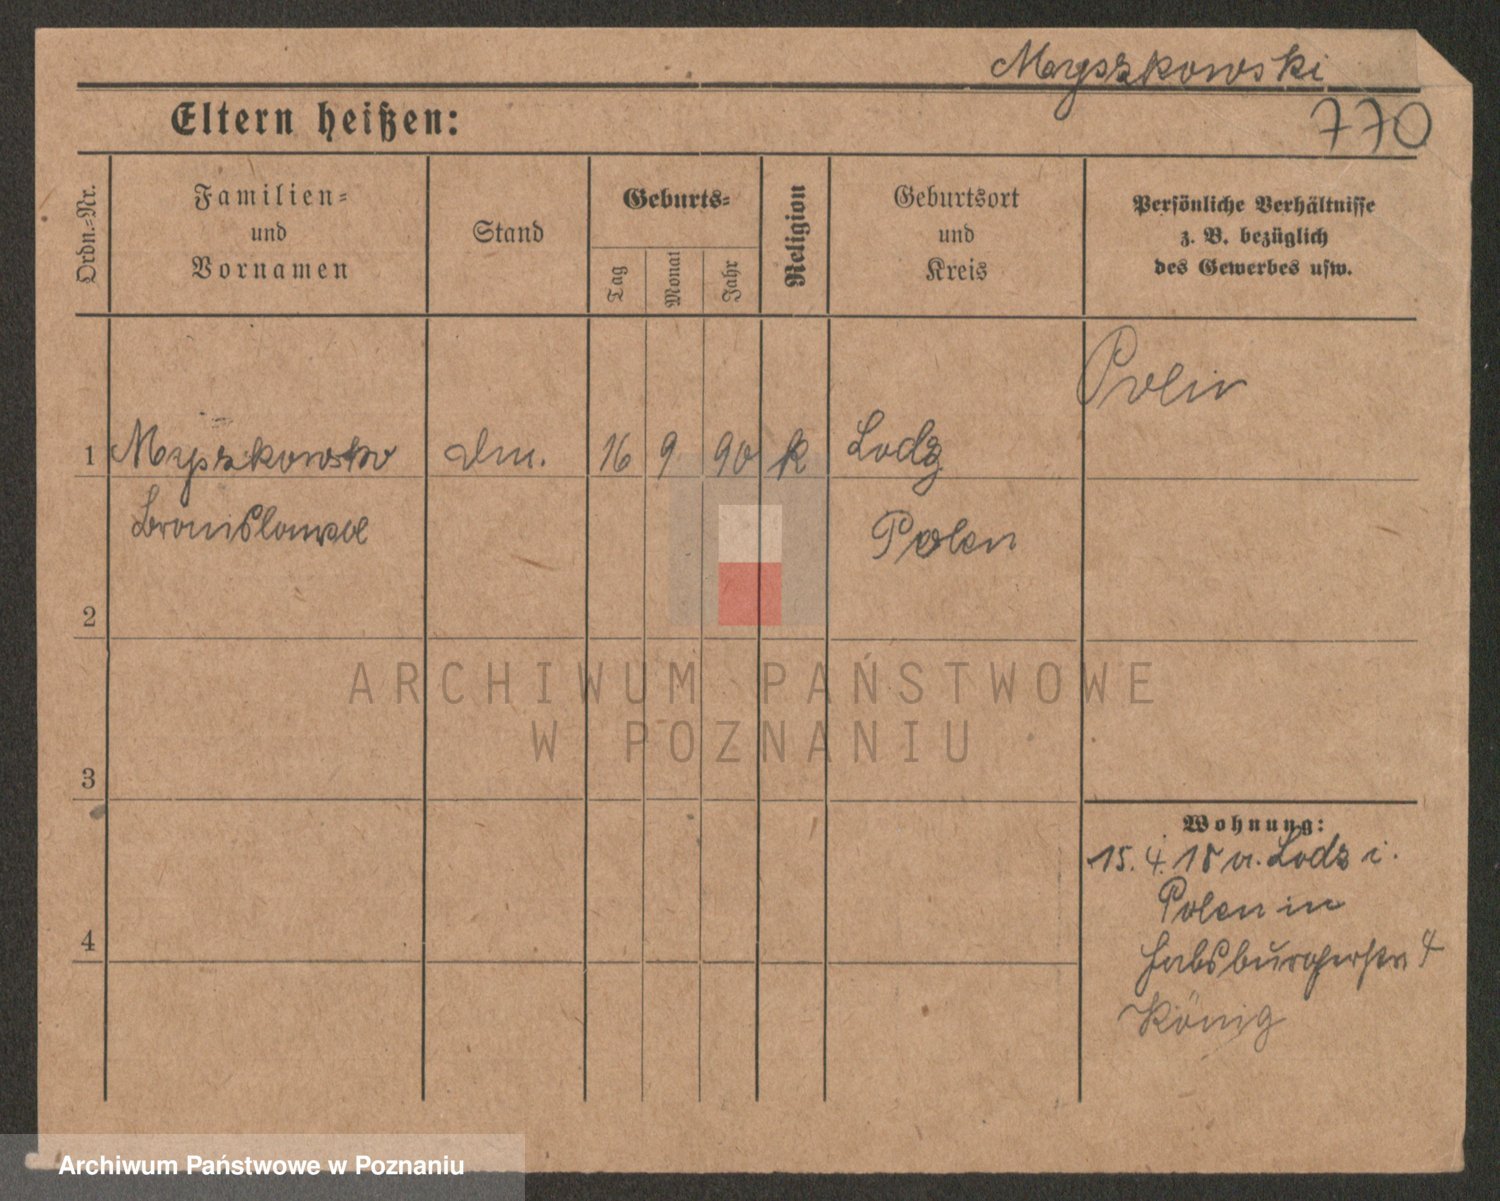 Myszkowski
770
Eltern heißen:
Ordn.-Nr.
Familien-
und
Vornamen
Stand
Geburts-
Tag
Monat
Jahr
Religion
Geburtsort
und
Kreis
Persönliche Verhältnisse
z. B. bezüglich
des Gewerbes usw.
Polin
1 Myszkowska 16 9 90 k Lodz
Bronislawa Polen
2
ARCHIWUM PAŃSTWOWE
W POZNANIU
3
Wohnung:
15. 4. 18 a. Lodz i.
Polen in
4
Habsburgerstr. 4
König
Archiwum Państwowe w Poznaniu